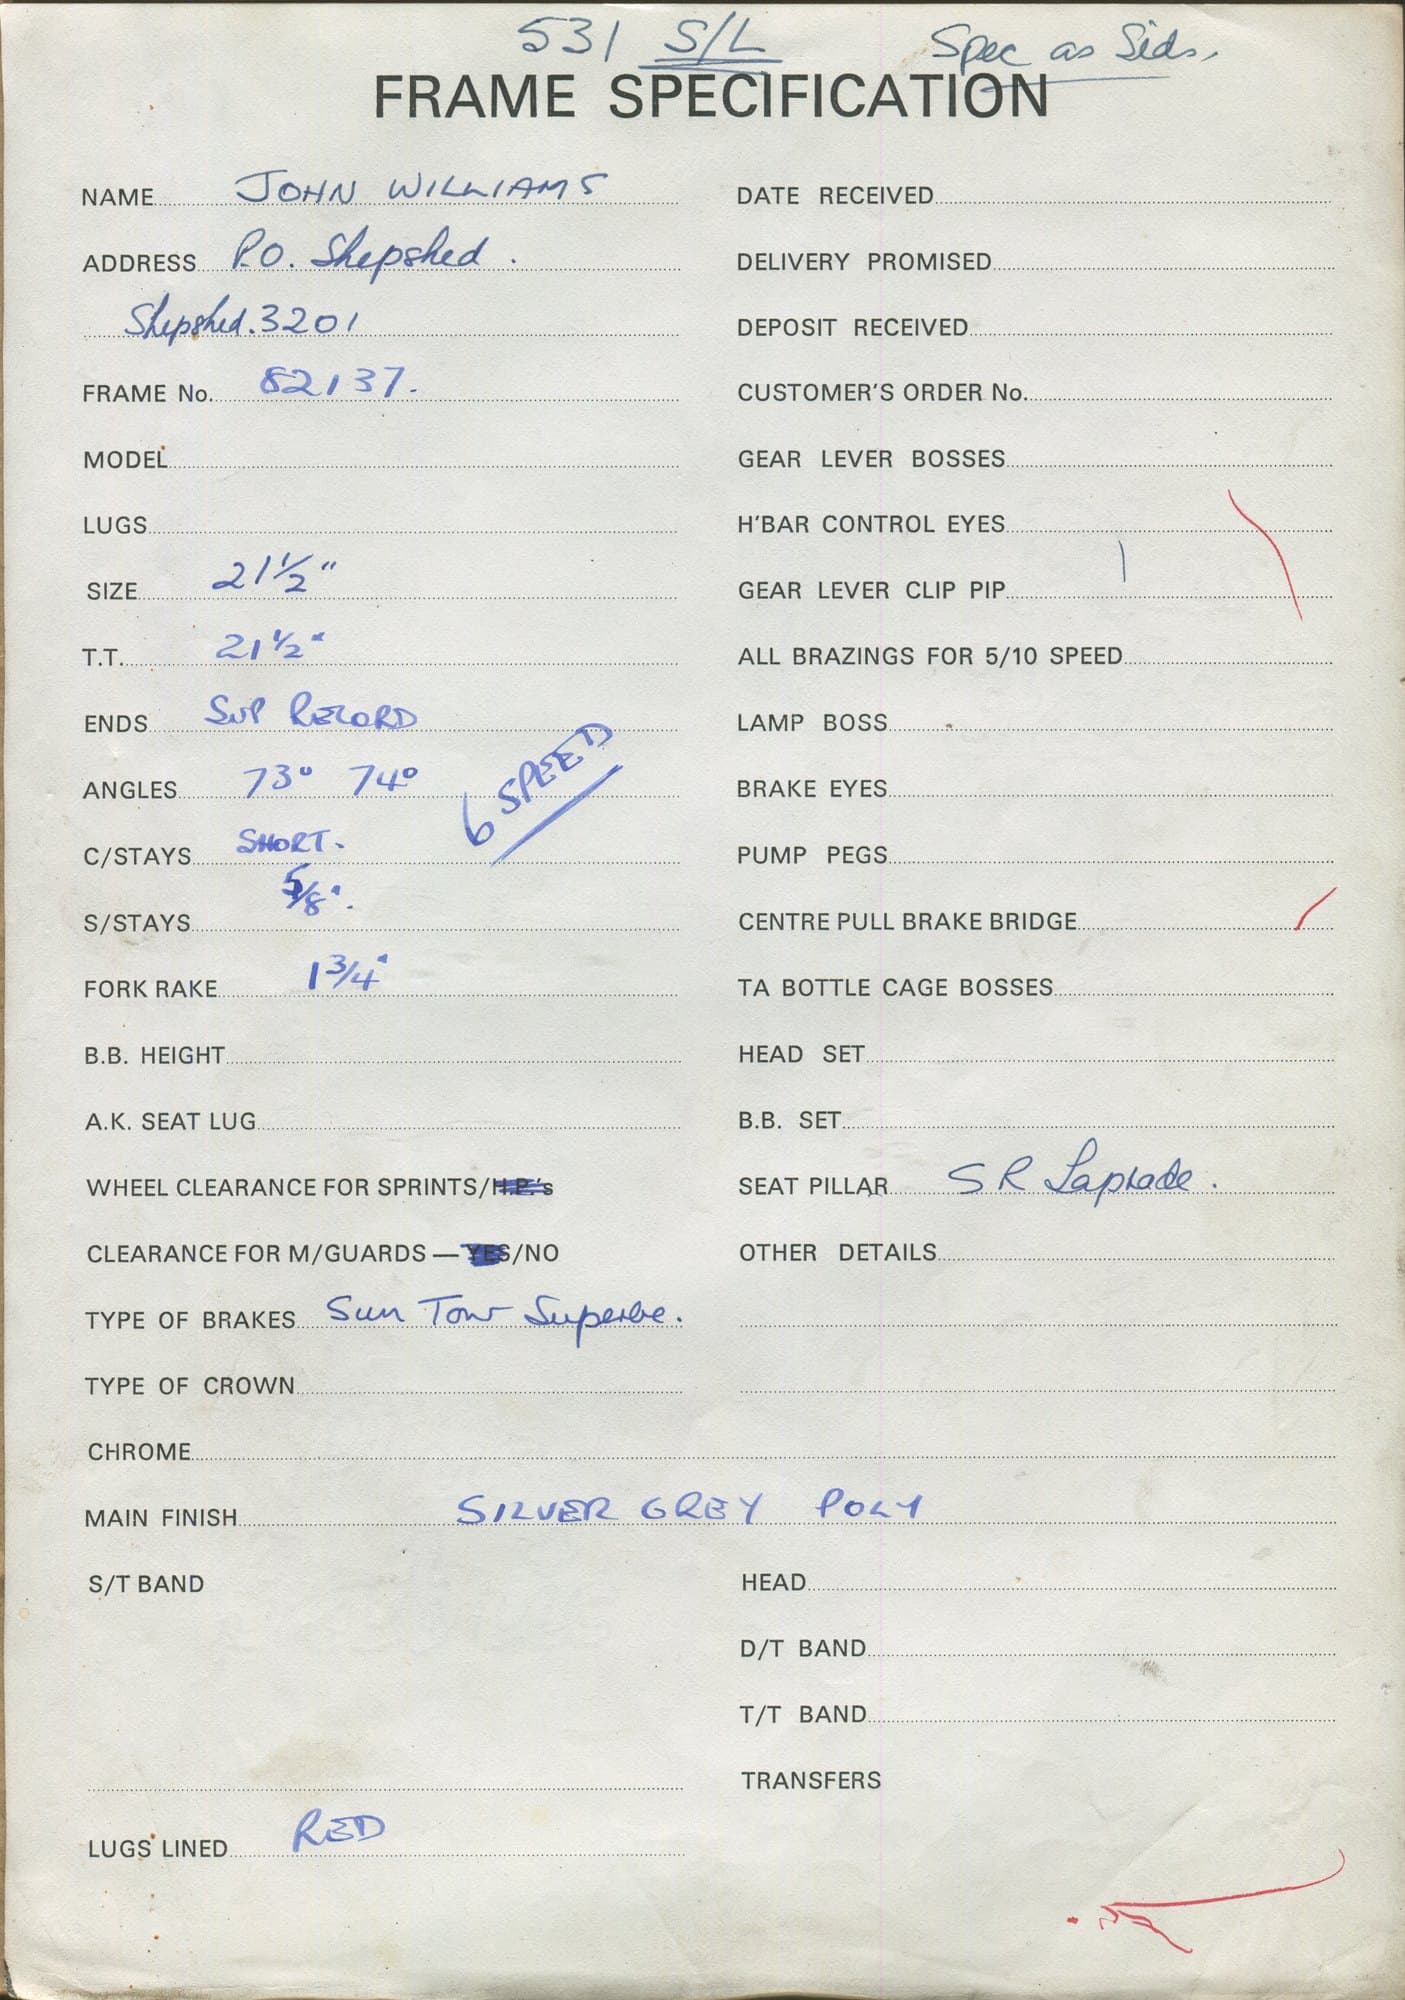 531 S/L Spec as Sids.
FRAME SPECIFICATION
NAME JOHN WILLIAMS
ADDRESS P.O. Shepshed.
Shepshed. 3201
FRAME No. 82137.
MODEL
LUGS
SIZE 21 1/2"
T.T. 21 1/2"
ENDS SUP RECORD
ANGLES 73° 74°
6 SPEED
C/STAYS SHORT.
S/STAYS 5/8".
FORK RAKE 1 3/4"
B.B. HEIGHT
A.K. SEAT LUG
WHEEL CLEARANCE FOR SPRINTS/H.P.'s
CLEARANCE FOR M/GUARDS — YES/NO
TYPE OF BRAKES Sun Tour Superbe.
TYPE OF CROWN
DATE RECEIVED
DELIVERY PROMISED
DEPOSIT RECEIVED
CUSTOMER'S ORDER No.
GEAR LEVER BOSSES
H'BAR CONTROL EYES
GEAR LEVER CLIP PIP
ALL BRAZINGS FOR 5/10 SPEED
LAMP BOSS
BRAKE EYES
PUMP PEGS
CENTRE PULL BRAKE BRIDGE
TA BOTTLE CAGE BOSSES
HEAD SET
B.B. SET
SEAT PILLAR SR Laprade.
OTHER DETAILS
CHROME
MAIN FINISH SILVER GREY POLY
S/T BAND
LUGS LINED RED
HEAD
D/T BAND
T/T BAND
TRANSFERS